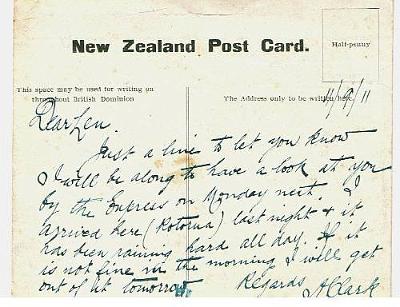 New Zealand Post Card.
Half-penny
This space may be used for writing on
throughout British Dominion
The Address only to be written here.
11/9/11
Dear Len.
Just a line to let you know
I will be along to have a look at you
by the Express on Monday next. I
arrived here (Rotorua) last night & it
has been raining hard all day. If it
is not fine in the morning I will get
out of it tomorrow
Regards
AClark